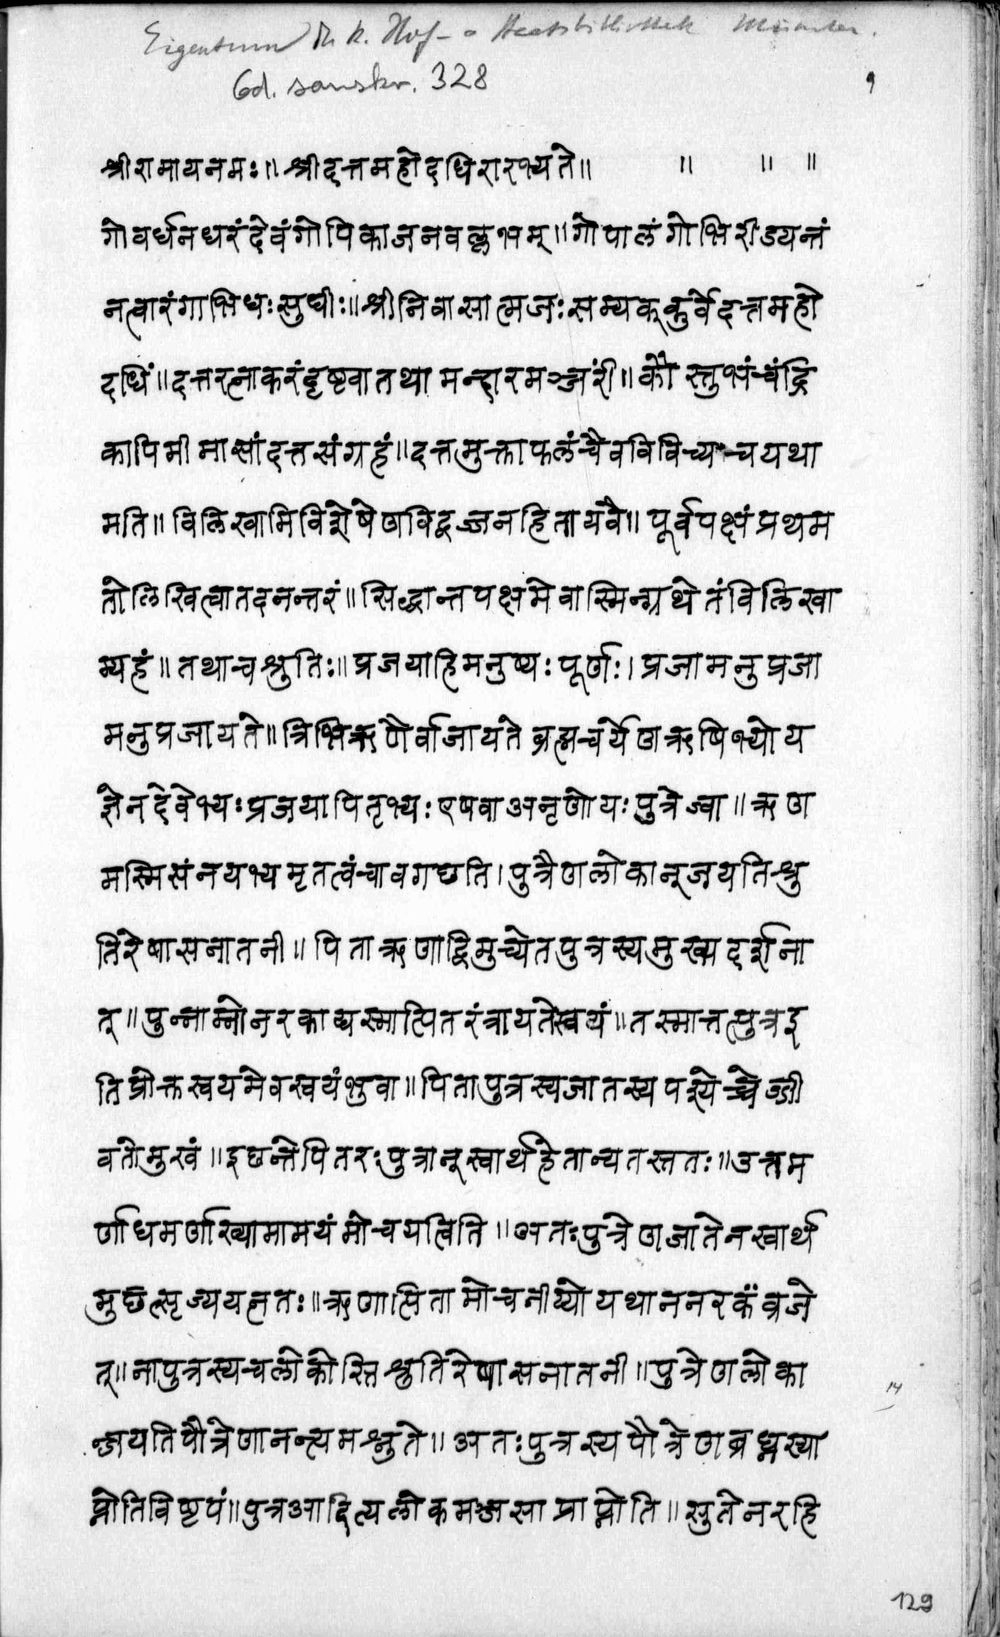 Eigentum d. k. Hof- u Staatsbibliothek München.
Cod. sanskr. 328
9
श्रीरामायनमः॥ श्रीदत्तमहोदधिरारभ्यते॥ ॥ ॥ ॥
गोवर्धनधरंदेवंगोपिकाजनवल्लभम्॥ गोपालंगोभिरीडयन्तं
नत्वारंगाभिधःसुधीः॥ श्रीनिवासात्मजःसम्यक्कुर्वेदत्तमहो
दधिं॥ दत्तरत्नाकरंदृष्टवातथामन्दारमञ्जरीं॥ कौस्तुभंचंद्रि
कापिमीमासांदत्तसंग्रहं॥ दत्तमुक्ताफलंचैवविविच्यचयथा
मति॥ विलिखामिविशेषेणविद्वज्जनहितायवै॥ पूर्वपक्षंप्रथम
तोलिखित्वातदनन्तरं॥ सिद्धान्तपक्षमेवास्मिन्ग्रथेतंविलिखा
म्यहं॥ तथाचश्रुतिः॥ प्रजयाहिमनुष्यःपूर्णः। प्रजामनुप्रजा
मनुप्रजायते॥ त्रिभिऋणैर्वाजायतेब्रह्मचर्येणऋषिभ्योय
ज्ञेनदेवेभ्यःप्रजयापितृभ्यःएषवाअनृणोयःपुत्रेज्वा॥ ऋण
मस्मिसंनयभ्यमृतत्वंचावगछति। पुत्रैणलोकान्जयतिश्रु
तिरेषासनातनी॥ पिताऋणाद्विमुच्येतपुत्रस्यमुखदर्शना
त्॥ पुन्नाम्नोनरकाद्यस्मात्पितरंत्रायतेस्वयं॥ तस्मात्तत्पुत्रइ
तिप्रोक्तस्वयमेवस्वयंभुवा॥ पितापुत्रस्यजातस्यपश्येच्चेज्जी
वतोमुखं॥ इछन्तेपितरःपुत्रान्स्वार्थहेतान्यतस्ततः॥ उत्तम
र्णाधमर्णाख्यामामयंमोचयत्विति॥ अतःपुत्रेणजातेनस्वार्थ
मुछत्सृज्ययत्नतः॥ ऋणात्पितामोचनीय्योयथाननरकंव्रजे
त्॥ नापुत्रस्यचलोकोस्तिश्रुतिरेषासनातनी॥ पुत्रेणलोका
14
न्जयतिपौत्रेणानन्त्यमश्नुते॥ अतःपुत्रस्यपौत्रेणब्रध्नस्या
प्नोतिविष्टपं॥ पुत्रआदित्यलोकमञ्जसाप्राप्नोति॥ सुतेनरहि
129